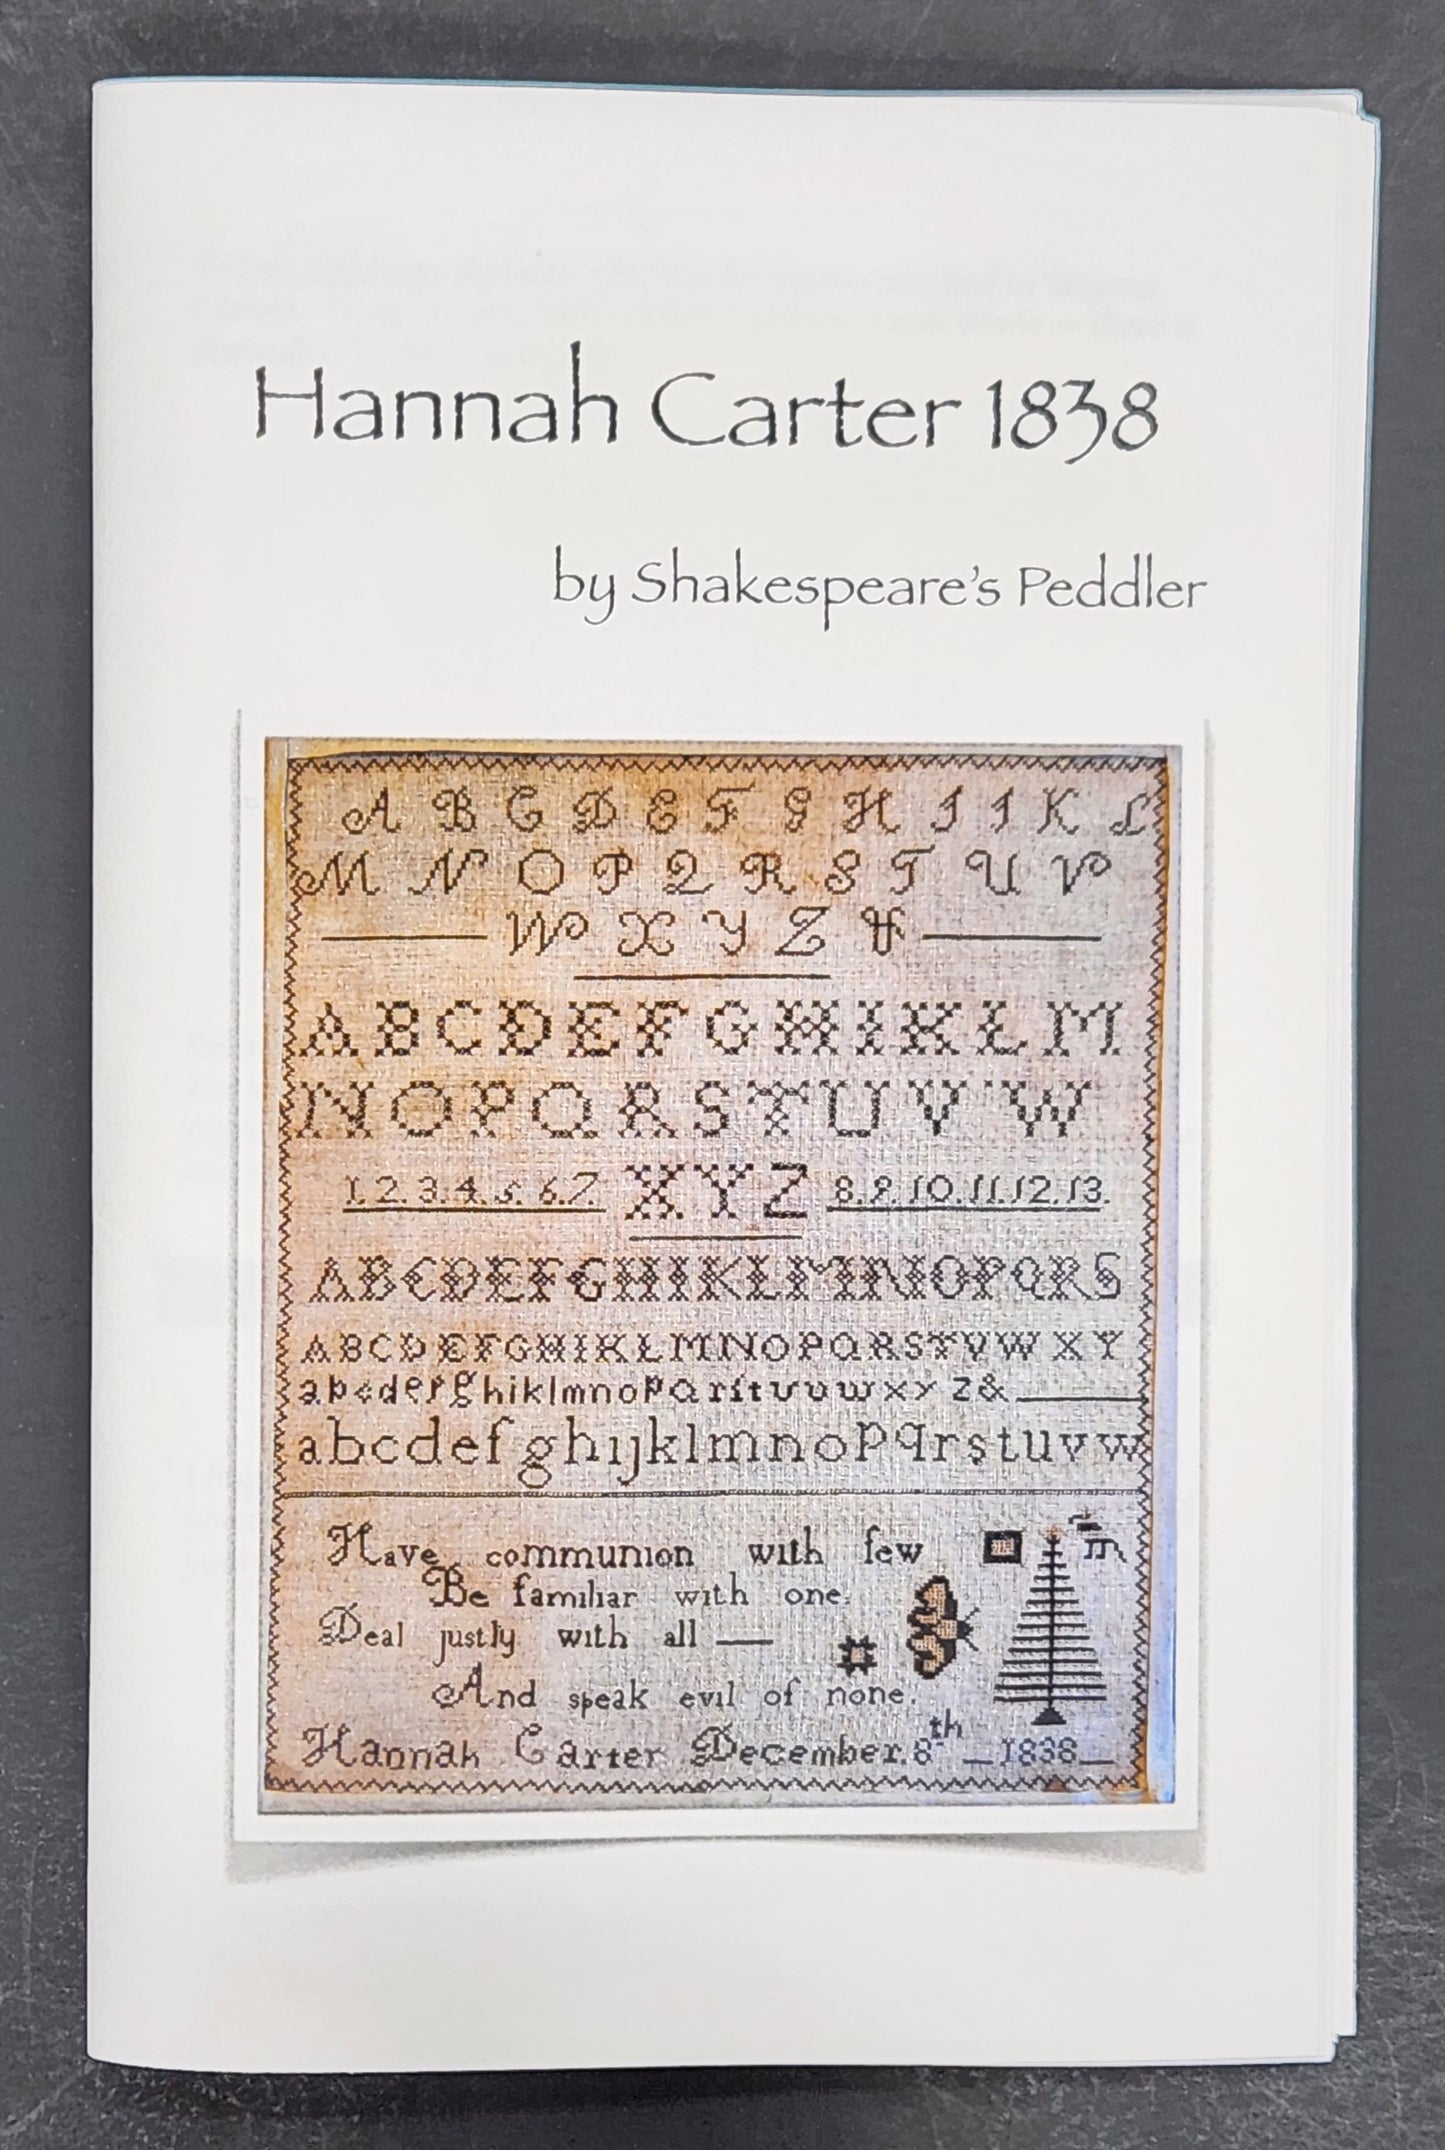 Hannah Carter 1838
by Shakespeare's Peddler
A B C D E F G H I I K L
M N O P Q R S T U V
W X Y Z
A B C D E F G H I K L M
N O P Q R S T U V W
1. 2. 3. 4. 5. 6. 7. X Y Z 8. 9. 10. 11. 12. 13.
A B C D E F G H I K L M N O P Q R S
A B C D E F G H I K L M N O P Q R S T V W X Y
a b c d e f g h i k l m n o p q r ſ t v u w x y z &
a b c d e f g h i j k l m n o p q r s t u v w
Have communion with few
Be familiar with one.
Deal justly with all —
And speak evil of none.
Hannah Carter December. 8th — 1838 —